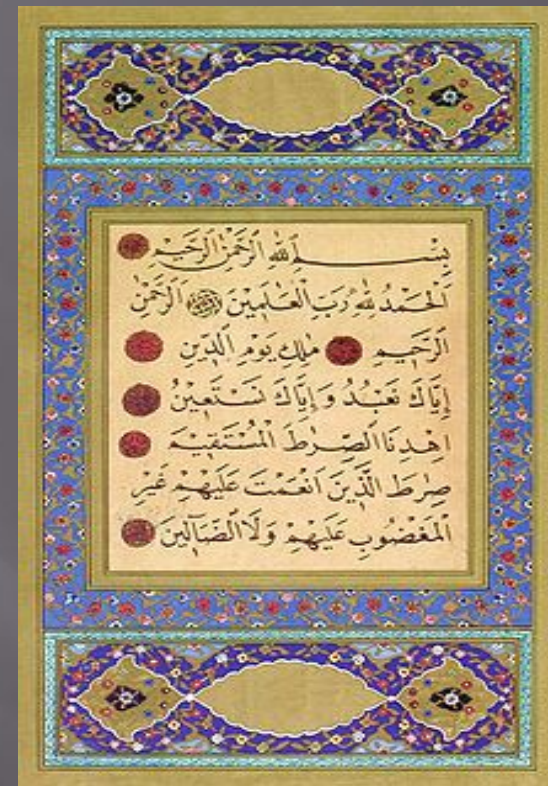 بِسْمِ اللّٰهِ الرَّحْمٰنِ الرَّحِيمِ
اَلْحَمْدُ لِلّٰهِ رَبِّ الْعَالَمِينَ الرَّحْمٰنِ
الرَّحِيمِ مٰلِكِ يَوْمِ الدِّينِ
إِيَّاكَ نَعْبُدُ وَإِيَّاكَ نَسْتَعِينُ
اِهْدِنَا الصِّرٰطَ الْمُسْتَقِيمَ
صِرٰطَ الَّذِينَ اَنْعَمْتَ عَلَيْهِمْ غَيْرِ
الْمَغْضُوبِ عَلَيْهِمْ وَلَا الضَّآلِّينَ